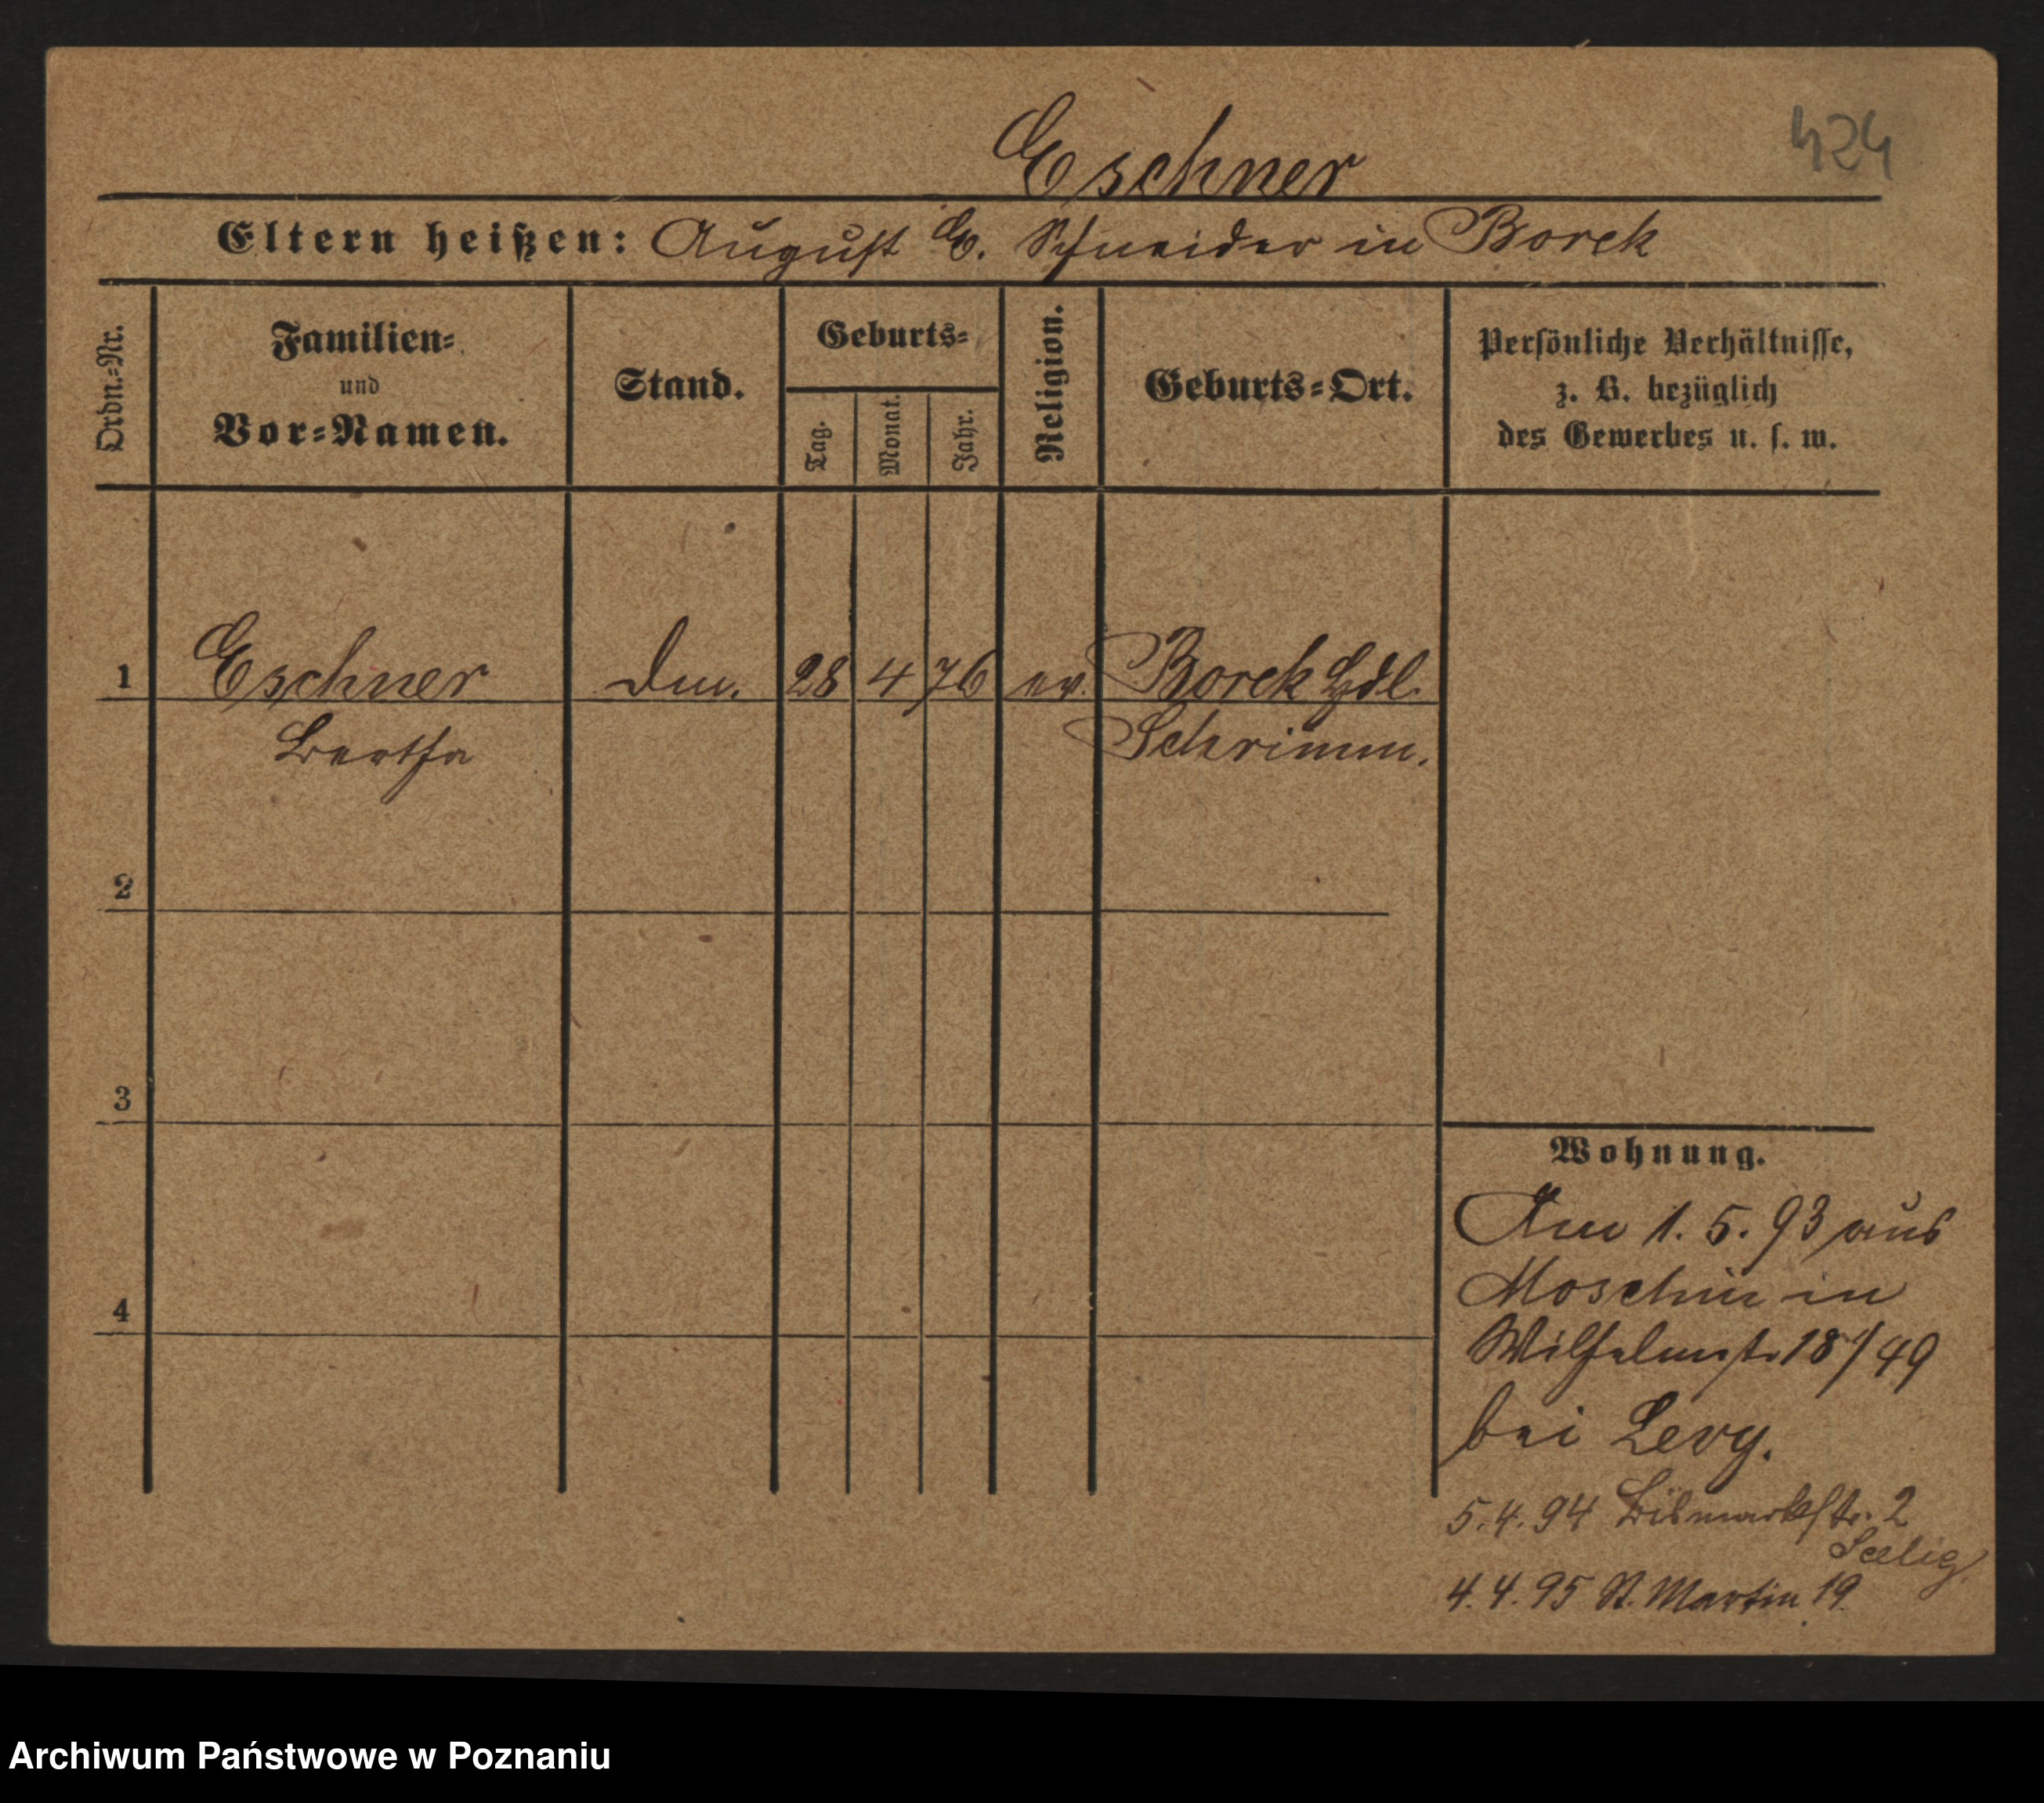 Eschner
424
Eltern heißen: August E. Schneider in Borek
Ordn.=Nr.
Familien=
und
Vor=Namen.
Stand.
Geburts=
Tag.
Monat.
Jahr.
Religion.
Geburts=Ort.
Persönliche Verhältnisse,
z. B. bezüglich
des Gewerbes u. s. w.
1 Eschner 28 4 76 ev. Borek
Bertha Schrimm.
2
3
4
Wohnung.
Am 1. 5. 93 aus
Moschin in
Wilhelmstr 18/49
bei Levy.
5. 4. 94 Bismarkstr. 2
Seelig
4. 4. 95 St. Martin 19.
Archiwum Państwowe w Poznaniu